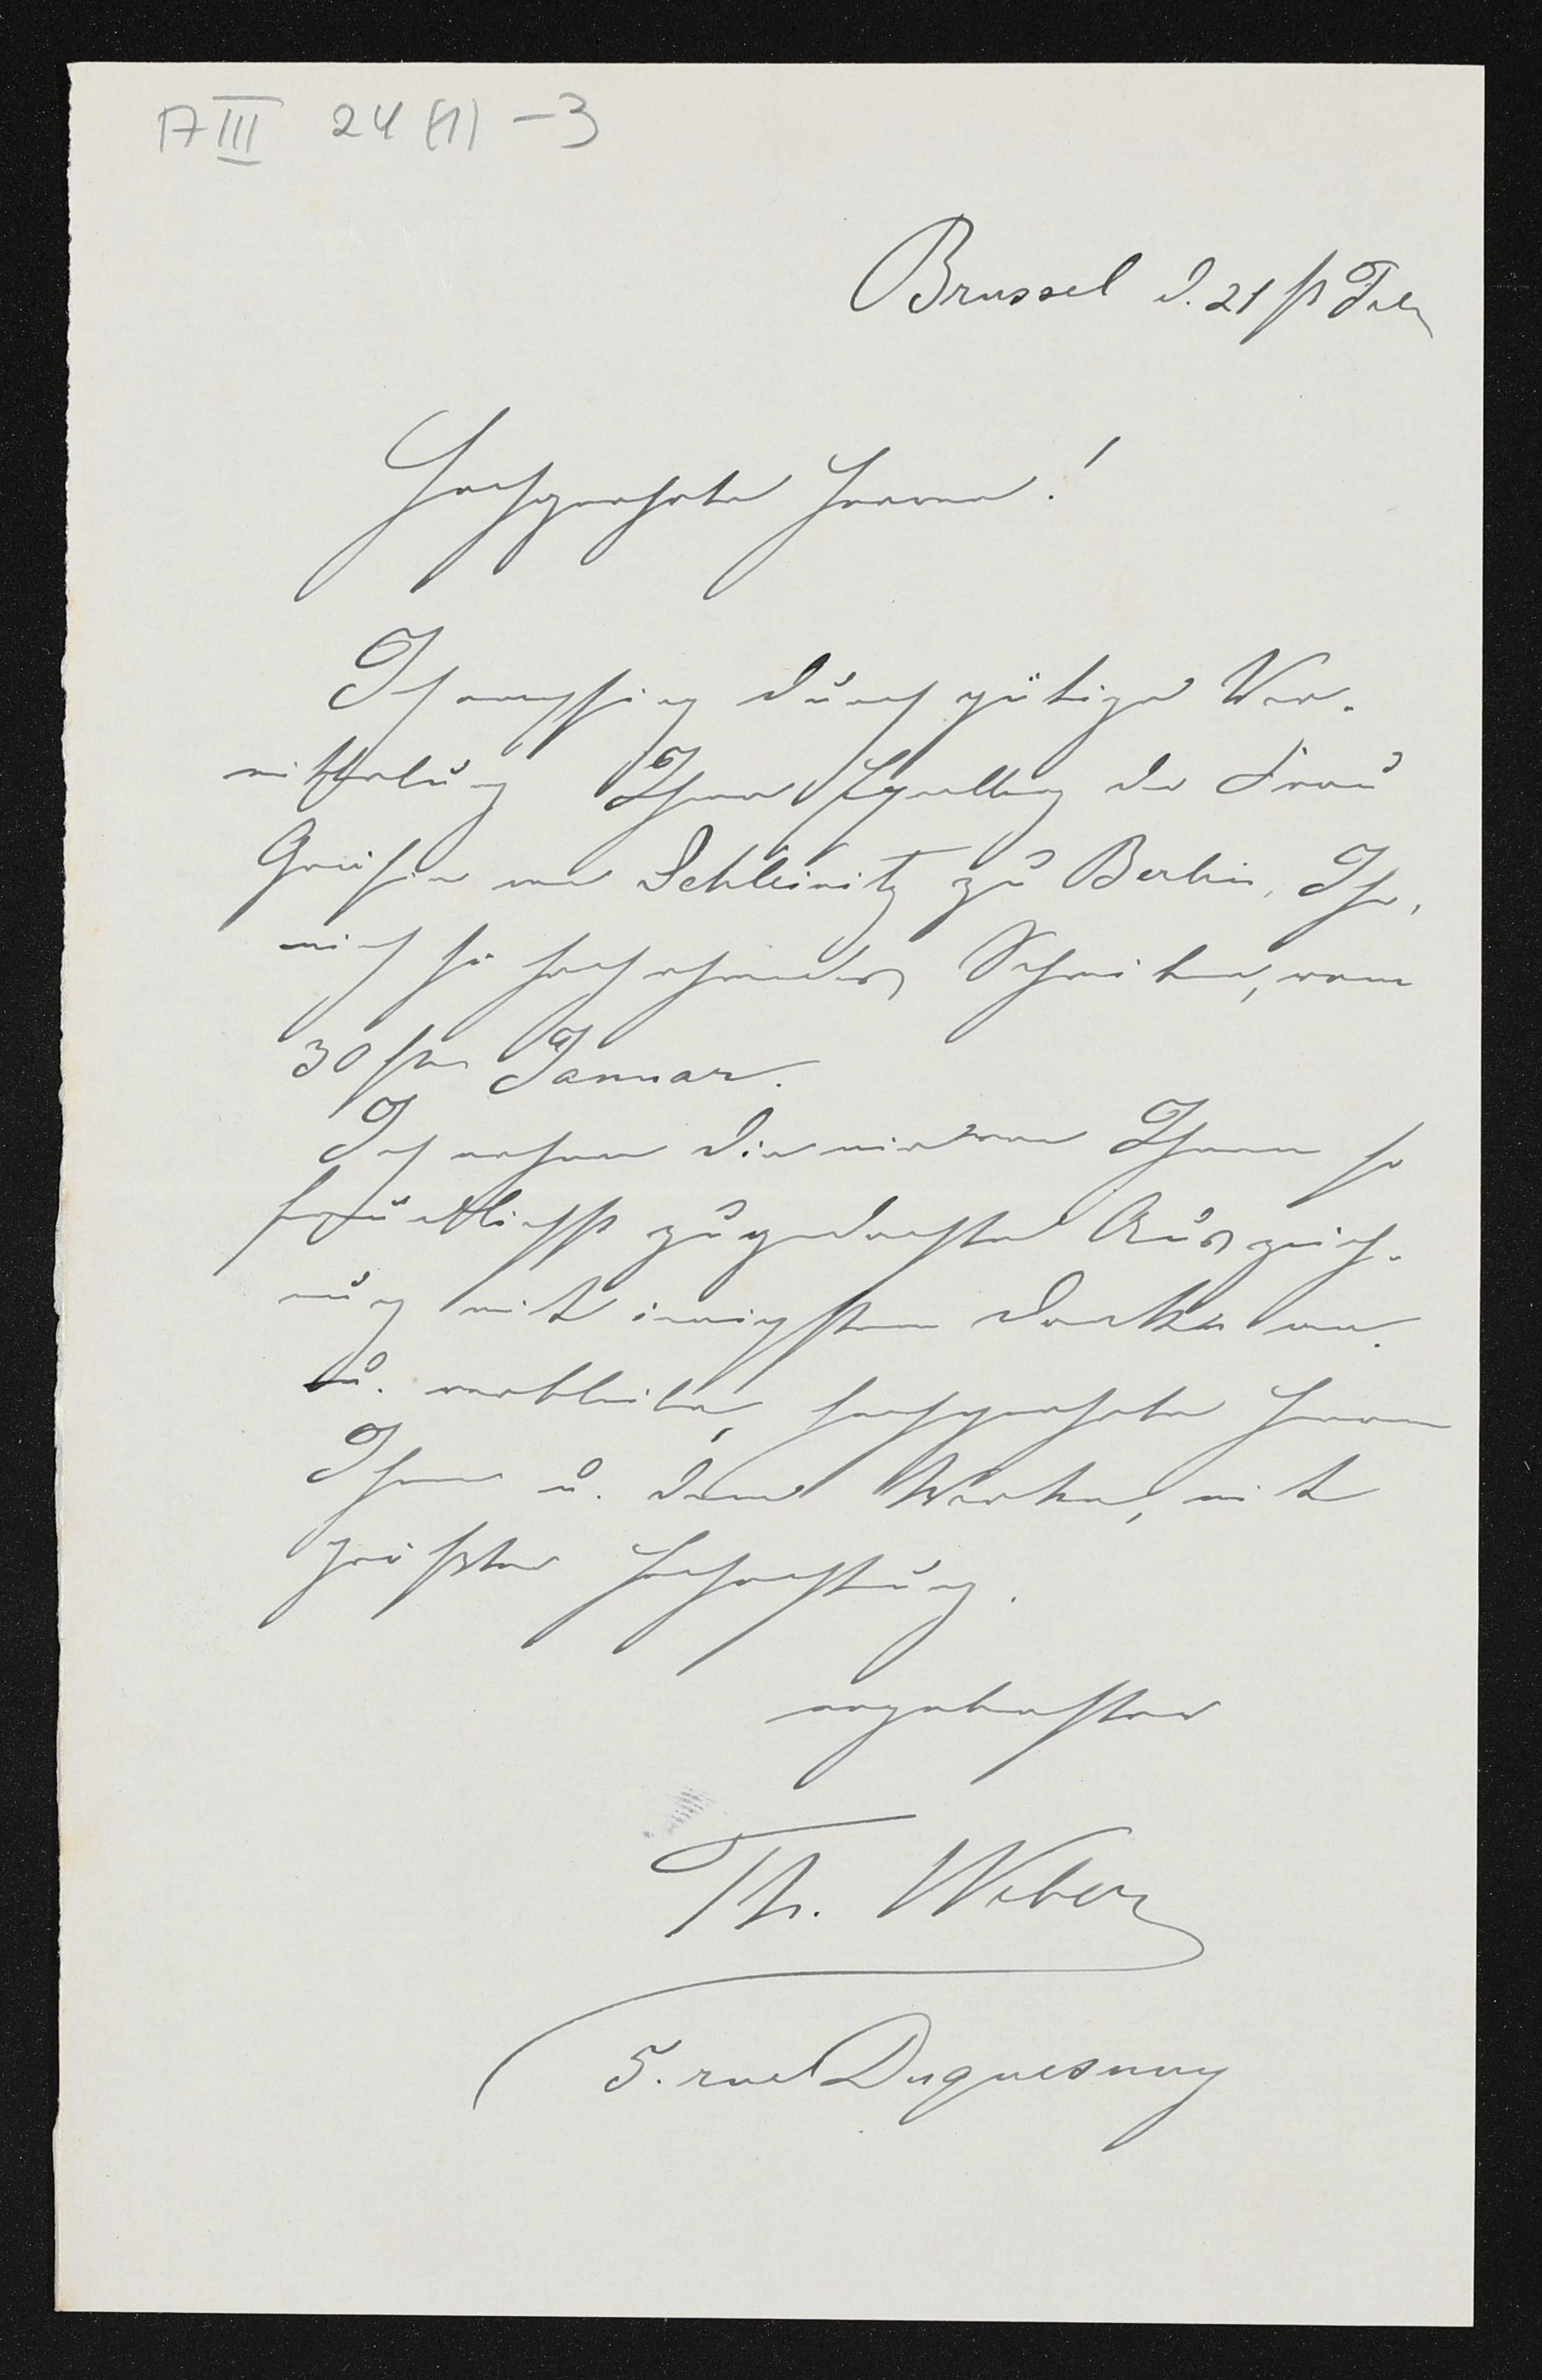 A III 24 (1) – 3
Brussel d. 21st Feb
Hochgeehrte Herren!
Ich empfing durch gütige Ver-
mittelung Ihrer Excellenz der Frau
Gräfin von Schleinitz zu Berlin, Ihr,
mich so hoch ehrendes Schreiben, vom
30sten Januar.
Ich nehme die mir von Ihnen so
freundlichst zugedachte Auszeich-
nung mit innigstem Danke an.
u. verbleibe, hochgeehrte Herren
Ihnen u. dem Werke, mit
größter Hochachtung.
ergebenster
Th. Weber
5. rue Duquesnoy